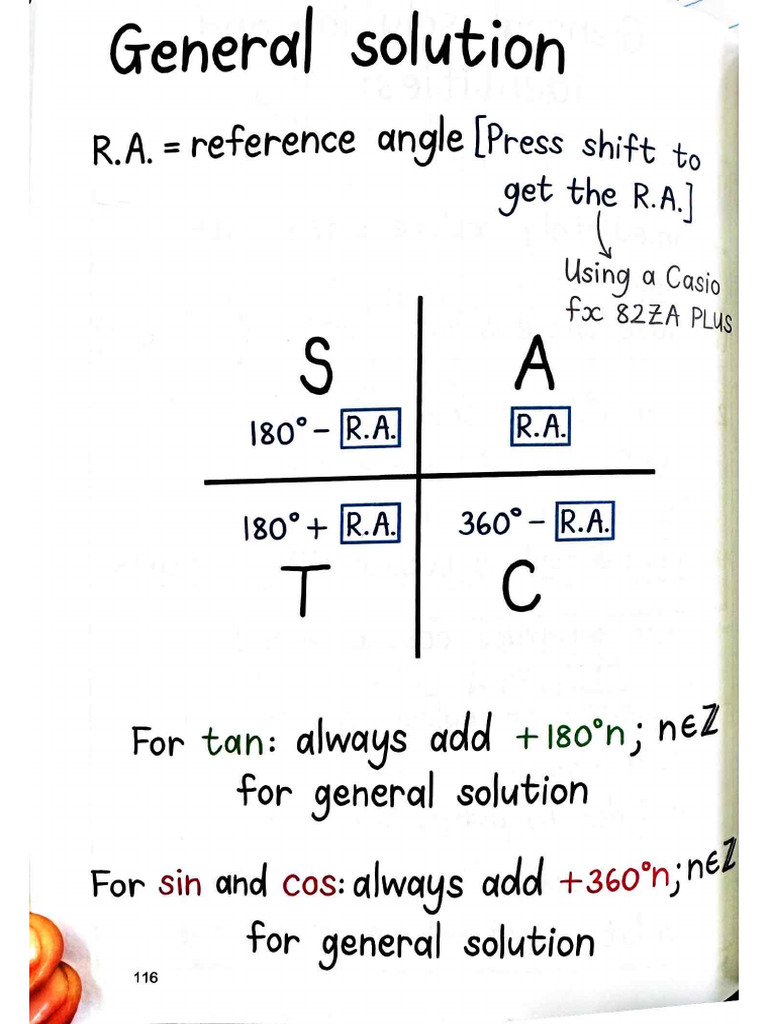 General solution
R.A. = reference angle [Press shift to
get the R.A.]
Using a Casio
fx 82ZA PLUS
S A
180° - R.A. R.A.
180° + R.A. 360° - R.A.
T C
For tan: always add +180°n; n∈ℤ
for general solution
For sin and cos: always add +360°n; n∈ℤ
for general solution
116